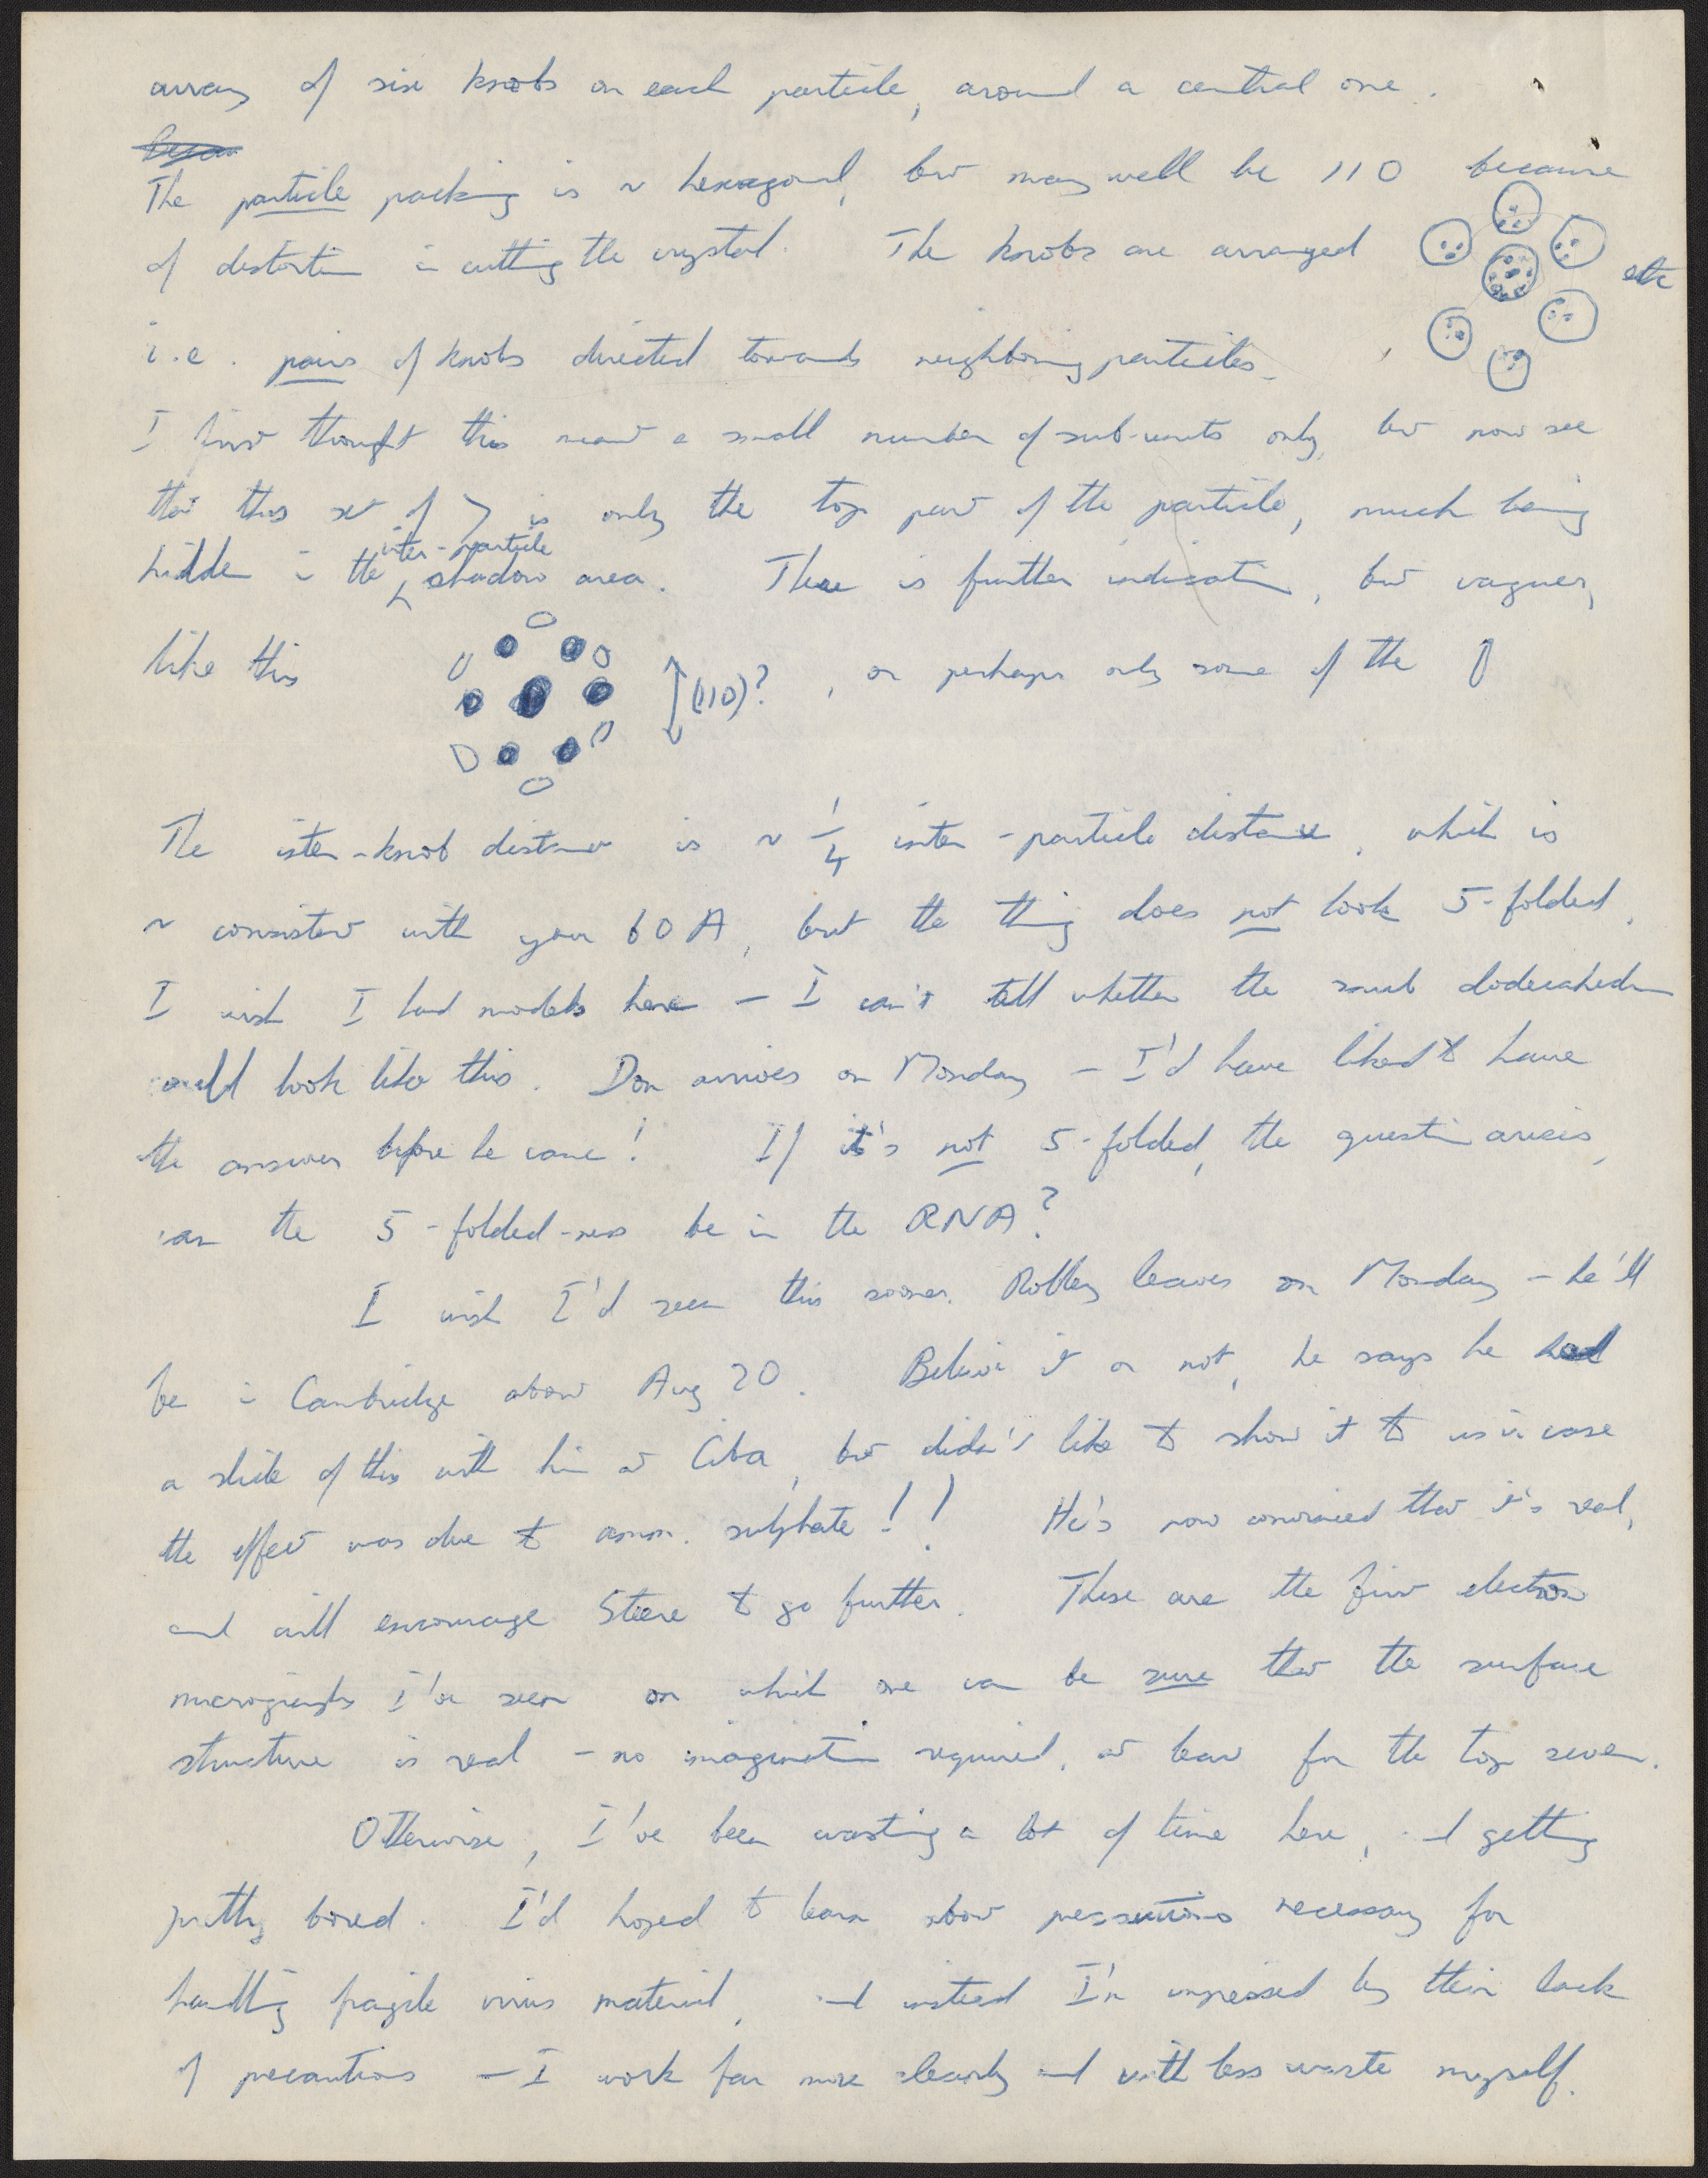 array of six knobs on each particle, around a central one.
The particle packing is ~ hexagonal, but may well be 110 because
of distortion in cutting the crystal. The knobs are arranged
etc
i.e. pairs of knobs directed towards neighboring particles.
I first thought this meant a small number of sub-units only, but now see
that this set of 7 is only the top part of the particle, much being
hidden in the inter-particle shadow area. There is further indication, but vaguer,
like this (110)? , or perhaps only some of the 0
The inter-knob distance is ~ 1/4 inter-particle distance, which is
~ consistent with your 60 A, but the thing does not look 5-folded.
I wish I had models here — I can't tell whether the snub dodecahedron
could look like this. Don arrives on Monday — I'd have liked to have
the answer before he came! If it's not 5-folded, the question arises,
can the 5-folded-ness be in the RNA?
I wish I'd seen this sooner. Robley leaves on Monday — he'll
be in Cambridge about Aug 20. Believe it or not, he says he had
a slide of this with him at Ciba, but didn't like to show it to us in case
the effect was due to amm. sulphate!! He's now convinced that it's real,
and will encourage Steere to go further. These are the first electron
micrographs I've seen on which one can be sure that the surface
structure is real — no imagination required, at least for the top seven.
Otherwise, I've been wasting a lot of time here, and getting
pretty bored. I'd hoped to learn about precautions necessary for
handling fragile virus material, and instead I'm impressed by their lack
of precautions — I work far more cleanly and with less waste myself.